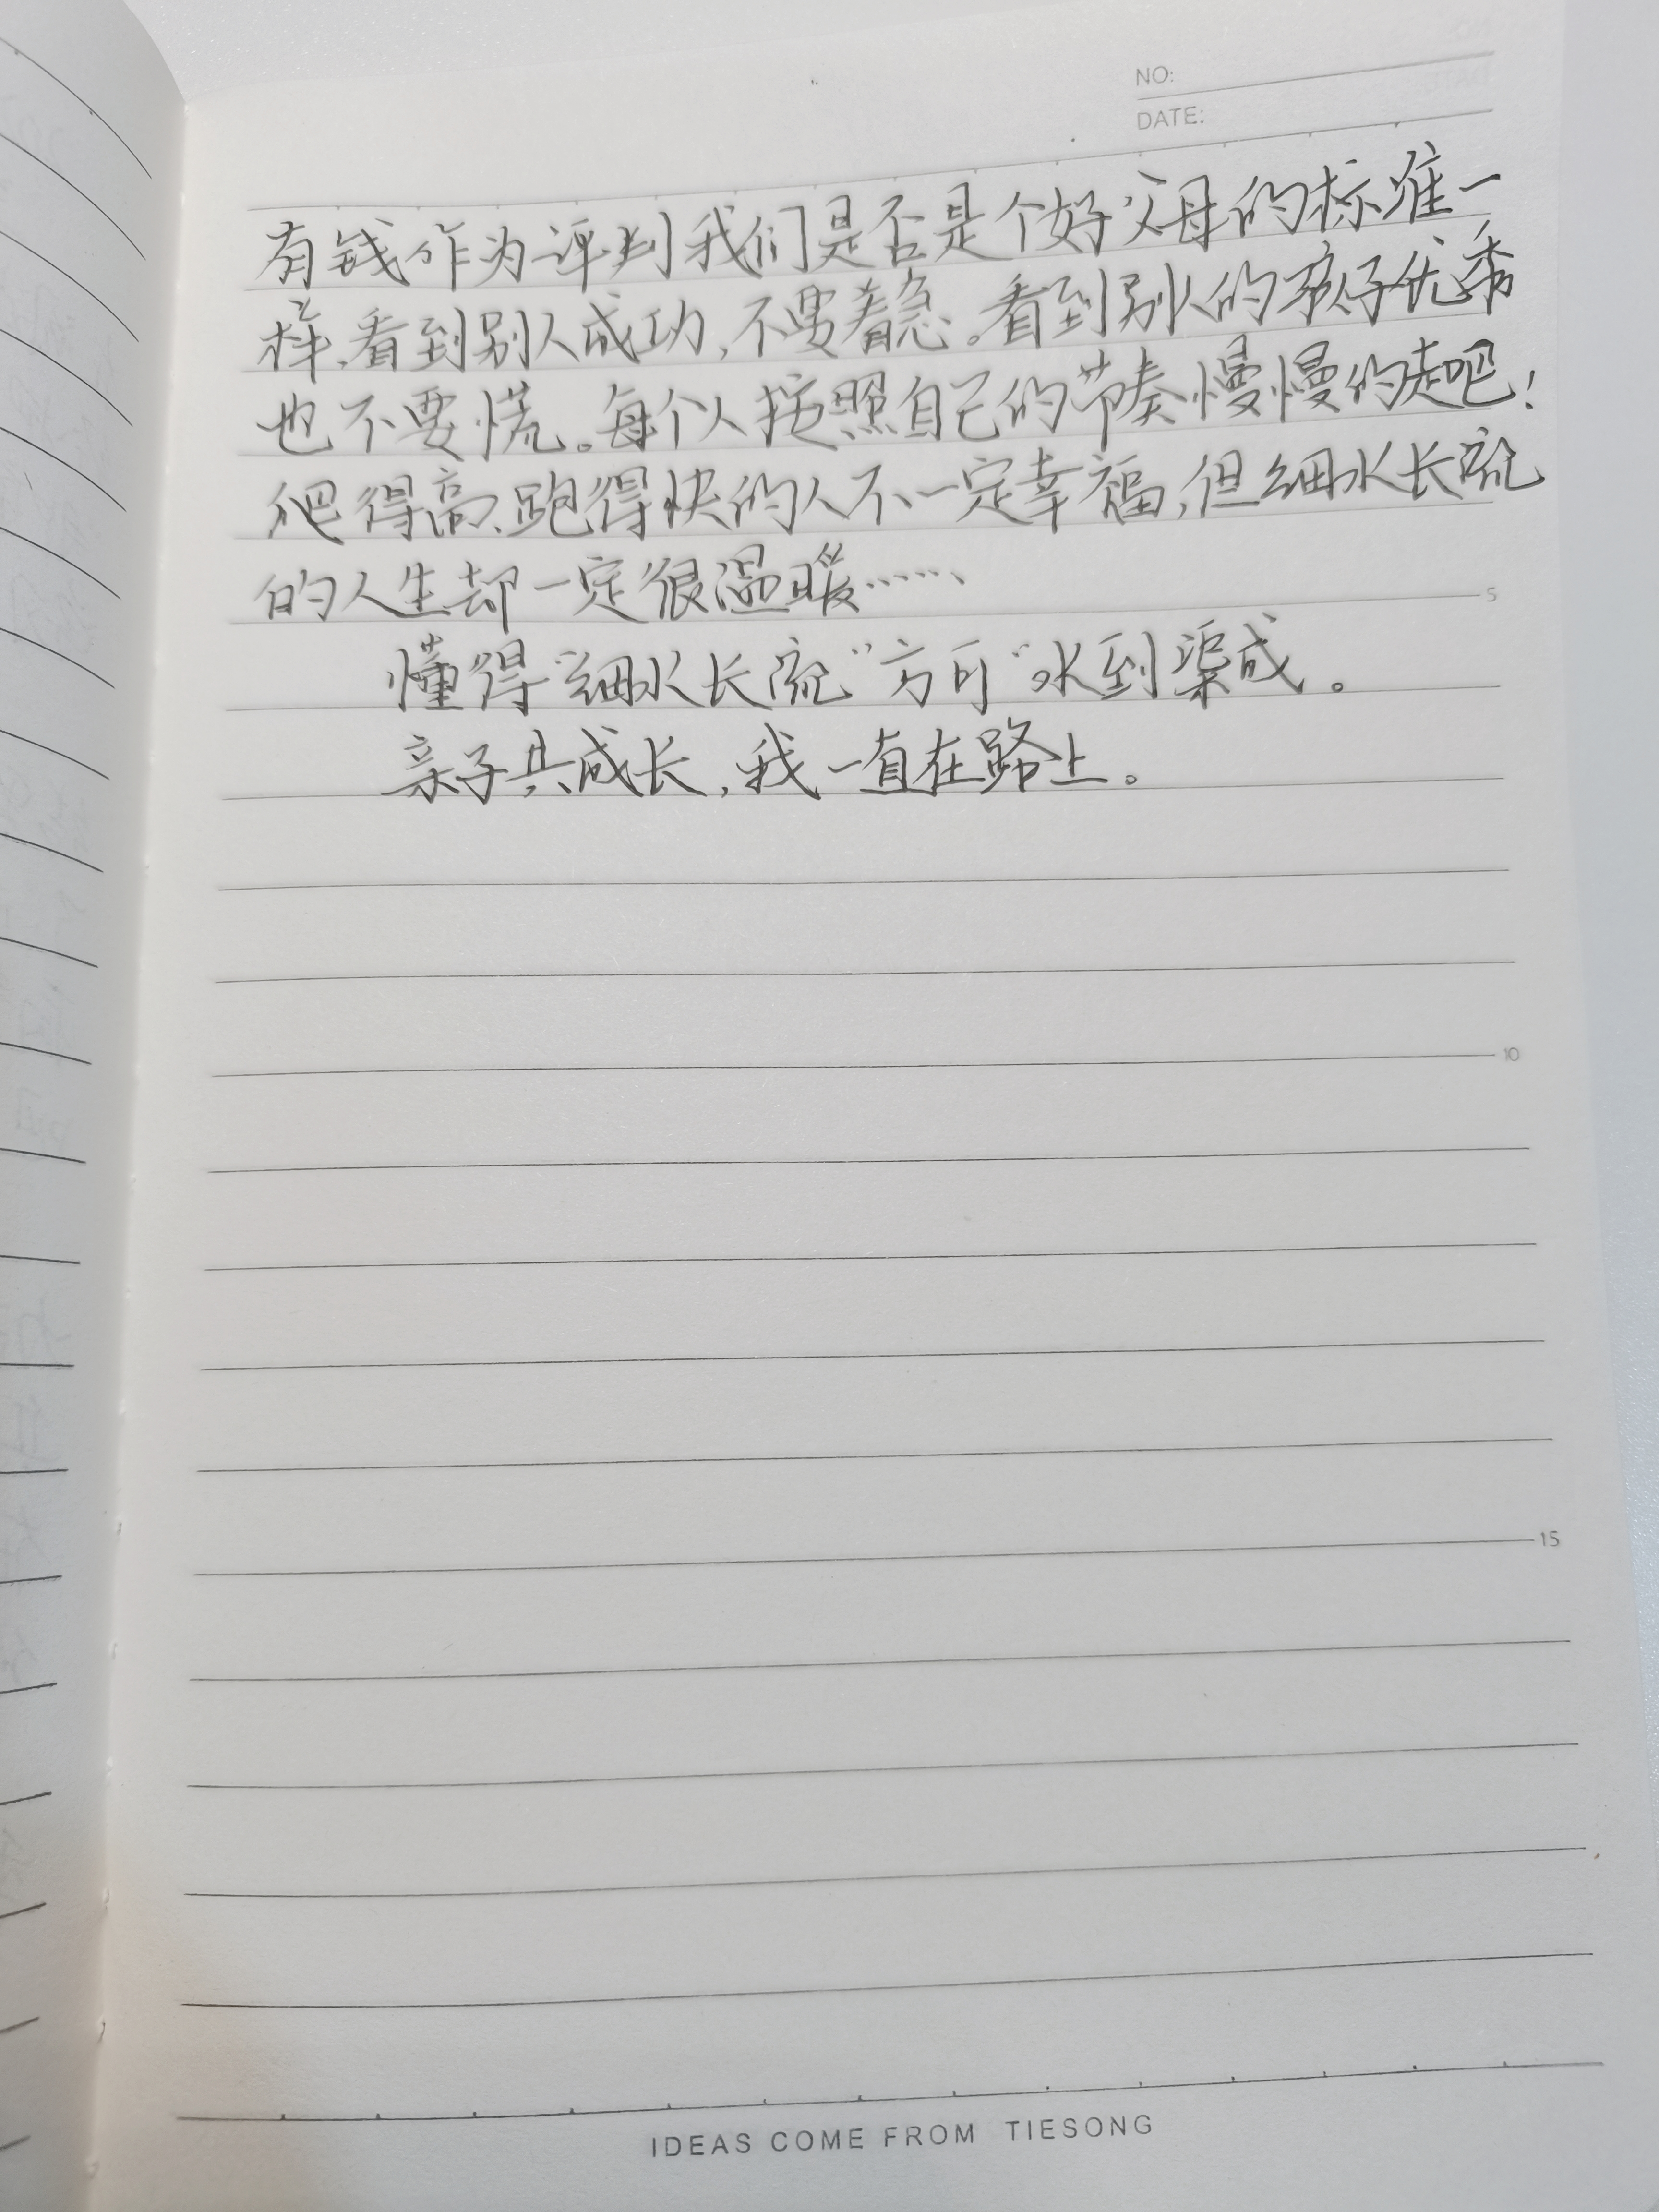 NO:
DATE:
有钱作为评判我们是否是个好父母的标准一
样,看到别人成功,不要着急。看到别人的孩子优秀
也不要慌。每个人按照自己的节奏慢慢的走吧!
爬得高、跑得快的人不一定幸福,但细水长流
的人生却一定很温暖……
5
懂得“细水长流”方可“水到渠成。
亲子共成长,我一直在路上。
10
15
IDEAS COME FROM TIESONG